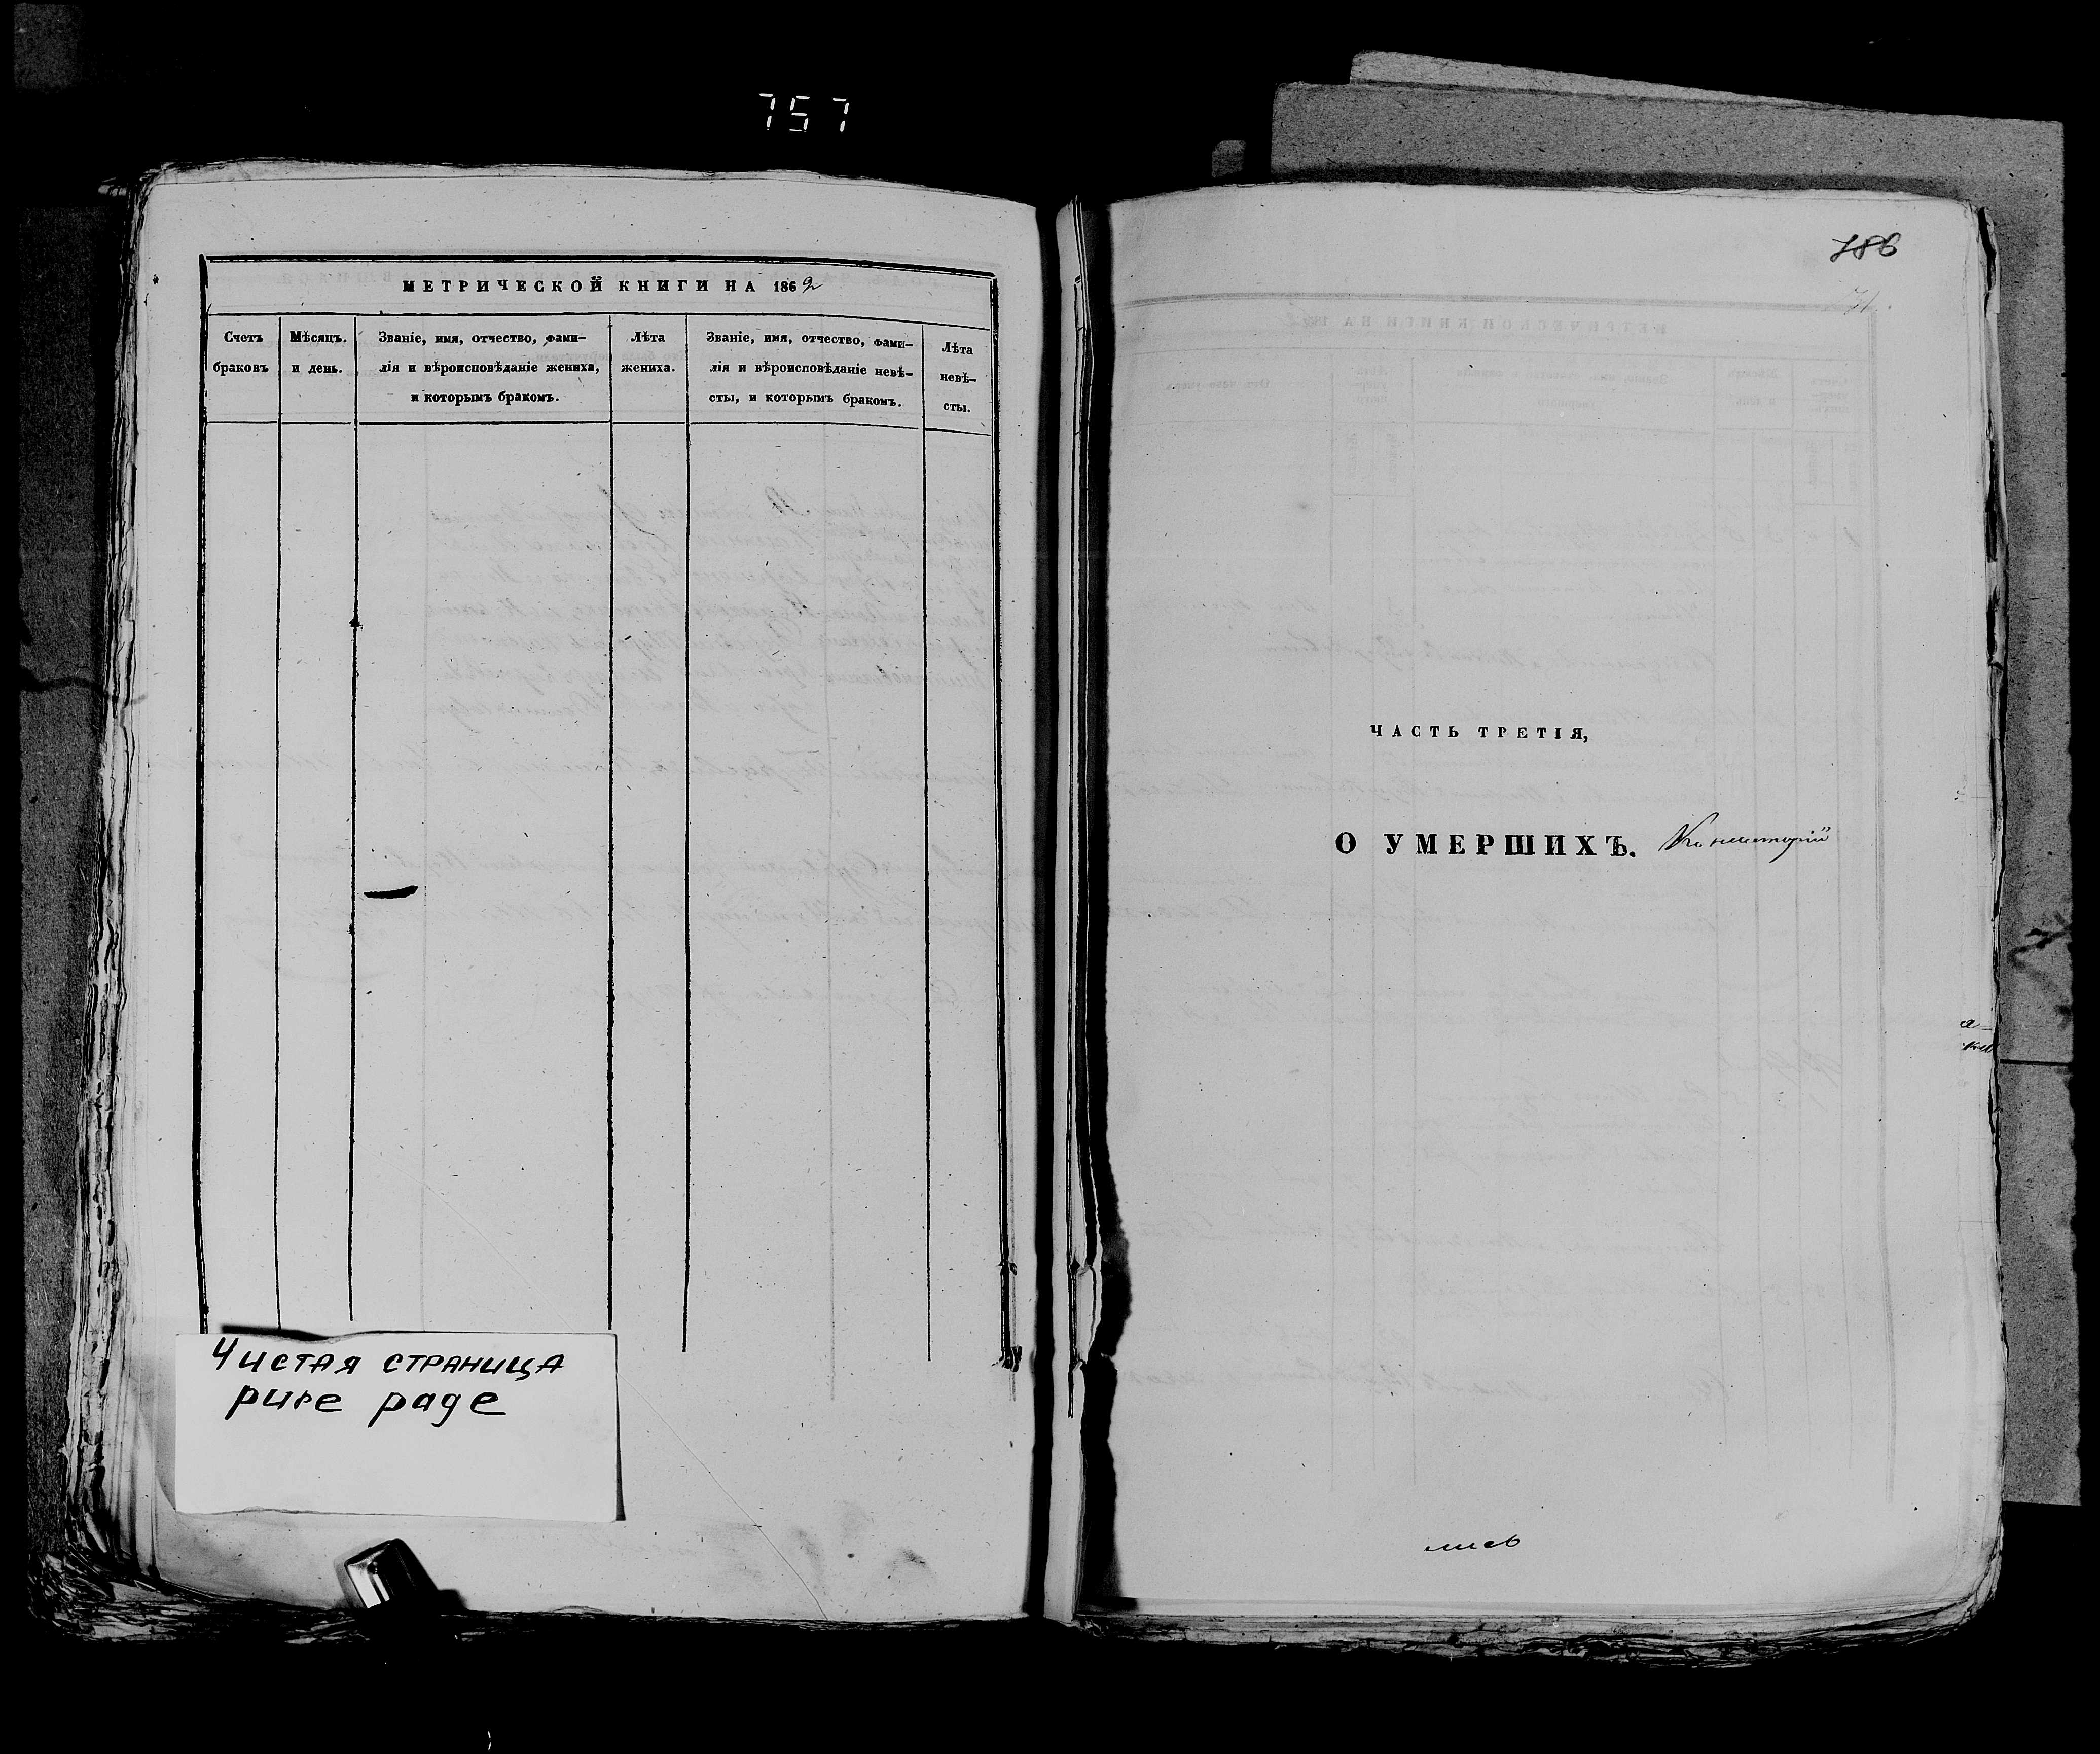 757
МЕТРИЧЕСКОЙ КНИГИ НА 1862
Счетъ
браковъ
Мѣсяцъ.
и день.
Званіе, имя, отчество, фами–
лія и вѣроисповѣданіе жениха,
и которымъ бракомъ.
Лѣта
жениха.
Званіе, имя, отчество, фами–
лія и вѣроисповѣданіе невѣ–
сты, и которымъ бракомъ.
Лѣта
невѣ–
сты.
Чистая страница
pure page
786
ЧАСТЬ ТРЕТІЯ,
О УМЕРШИХЪ.